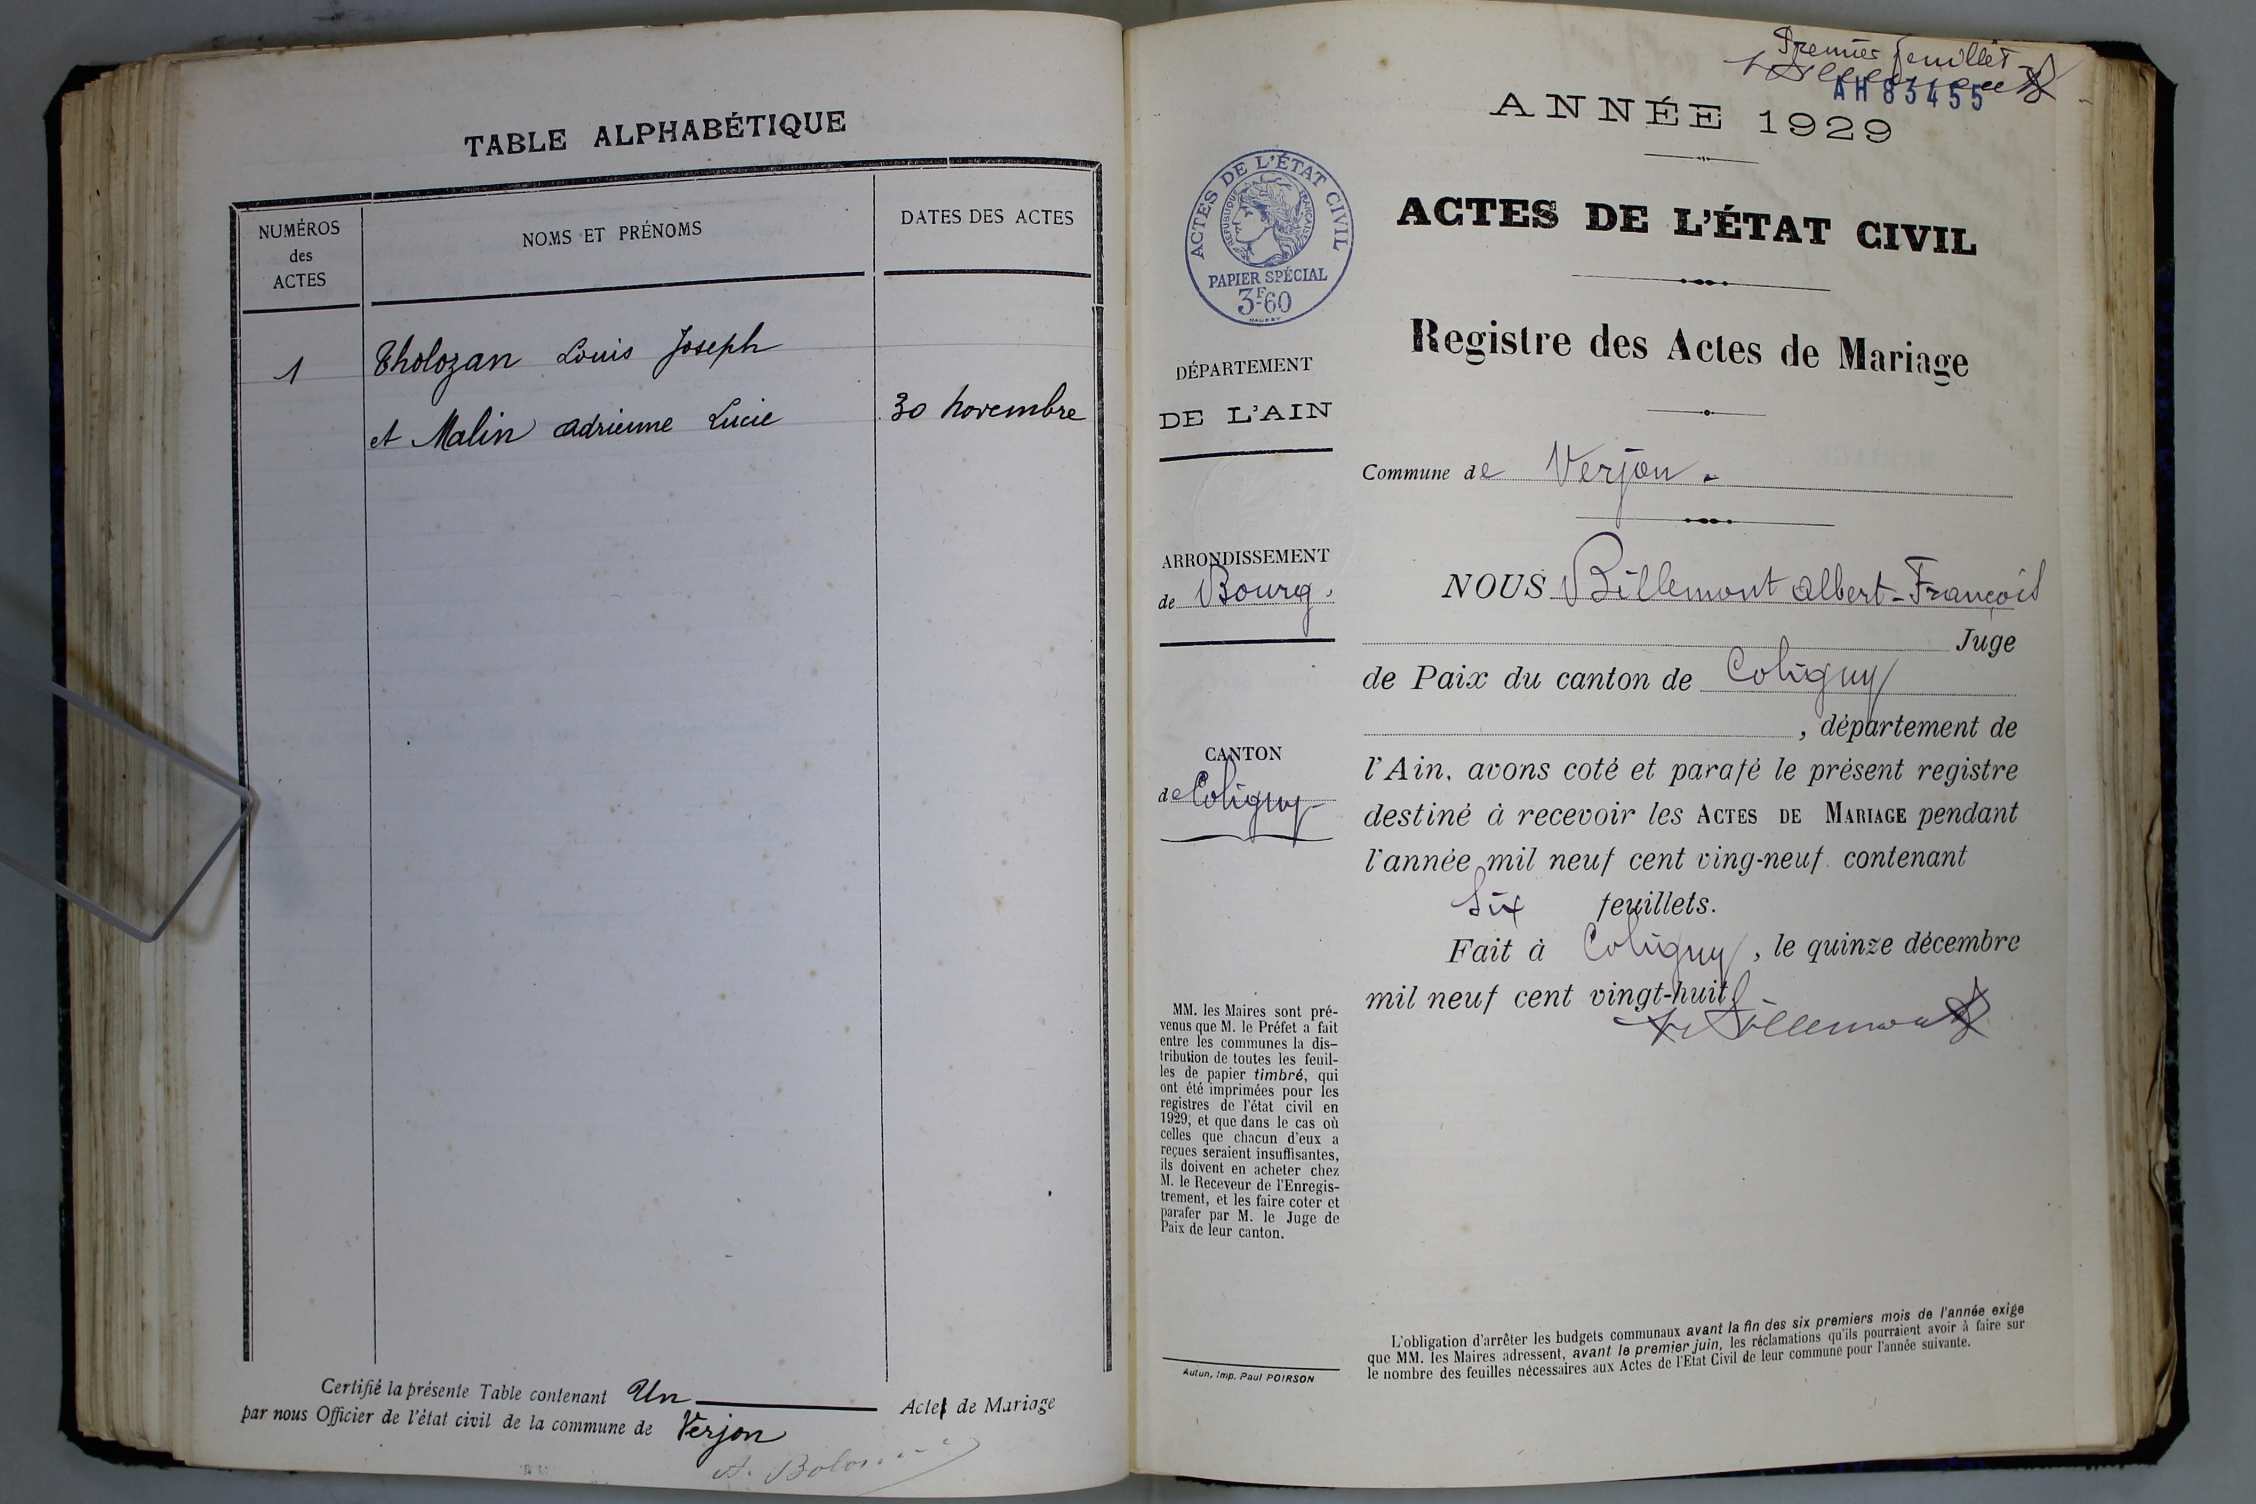 TABLE ALPHABÉTIQUE
NUMÉROS
des
ACTES
NOMS ET PRÉNOMS
DATES DES ACTES
1
Tholozan Louis Joseph
et Malin Adrienne Lucie
30 novembre
Certifié la présente Table contenant Un Acte de Mariage
par nous Officier de l'état civil de la commune de Verjon
Premier feuillet
AH 83455
ANNÉE 1929
ACTES DE L'ÉTAT CIVIL
RÉPUBLIQUE FRANÇAISE
PAPIER SPÉCIAL
3F60
ACTES DE L'ÉTAT CIVIL
Registre des Actes de Mariage
DÉPARTEMENT
DE L'AIN
Commune de Verjon.
ARRONDISSEMENT
de Bourg.
CANTON
de Coligny
NOUS Billemont Albert-François
Juge
de Paix du canton de Coligny
, département de
l'Ain, avons coté et parafé le présent registre
destiné à recevoir les ACTES DE MARIAGE pendant
l'année mil neuf cent ving-neuf contenant
Six feuillets.
Fait à Coligny, le quinze décembre
mil neuf cent vingt-huit
Billemont
MM. les Maires sont pré-
venus que M. le Préfet a fait
entre les communes la dis-
tribution de toutes les feuil-
les de papier timbré, qui
ont été imprimées pour les
registres de l'état civil en
1929, et que dans le cas où
celles que chacun d'eux a
reçues seraient insuffisantes,
ils doivent en acheter chez
M. le Receveur de l'Enregis-
trement, et les faire coter et
parafer par M. le Juge de
Paix de leur canton.
Autun, Imp. Paul POIRSON
L'obligation d'arrêter les budgets communaux avant la fin des six premiers mois de l'année exige
que MM. les Maires adressent, avant le premier juin, les réclamations qu'ils pourraient avoir à faire sur
le nombre des feuilles nécessaires aux Actes de l'Etat Civil de leur commune pour l'année suivante.